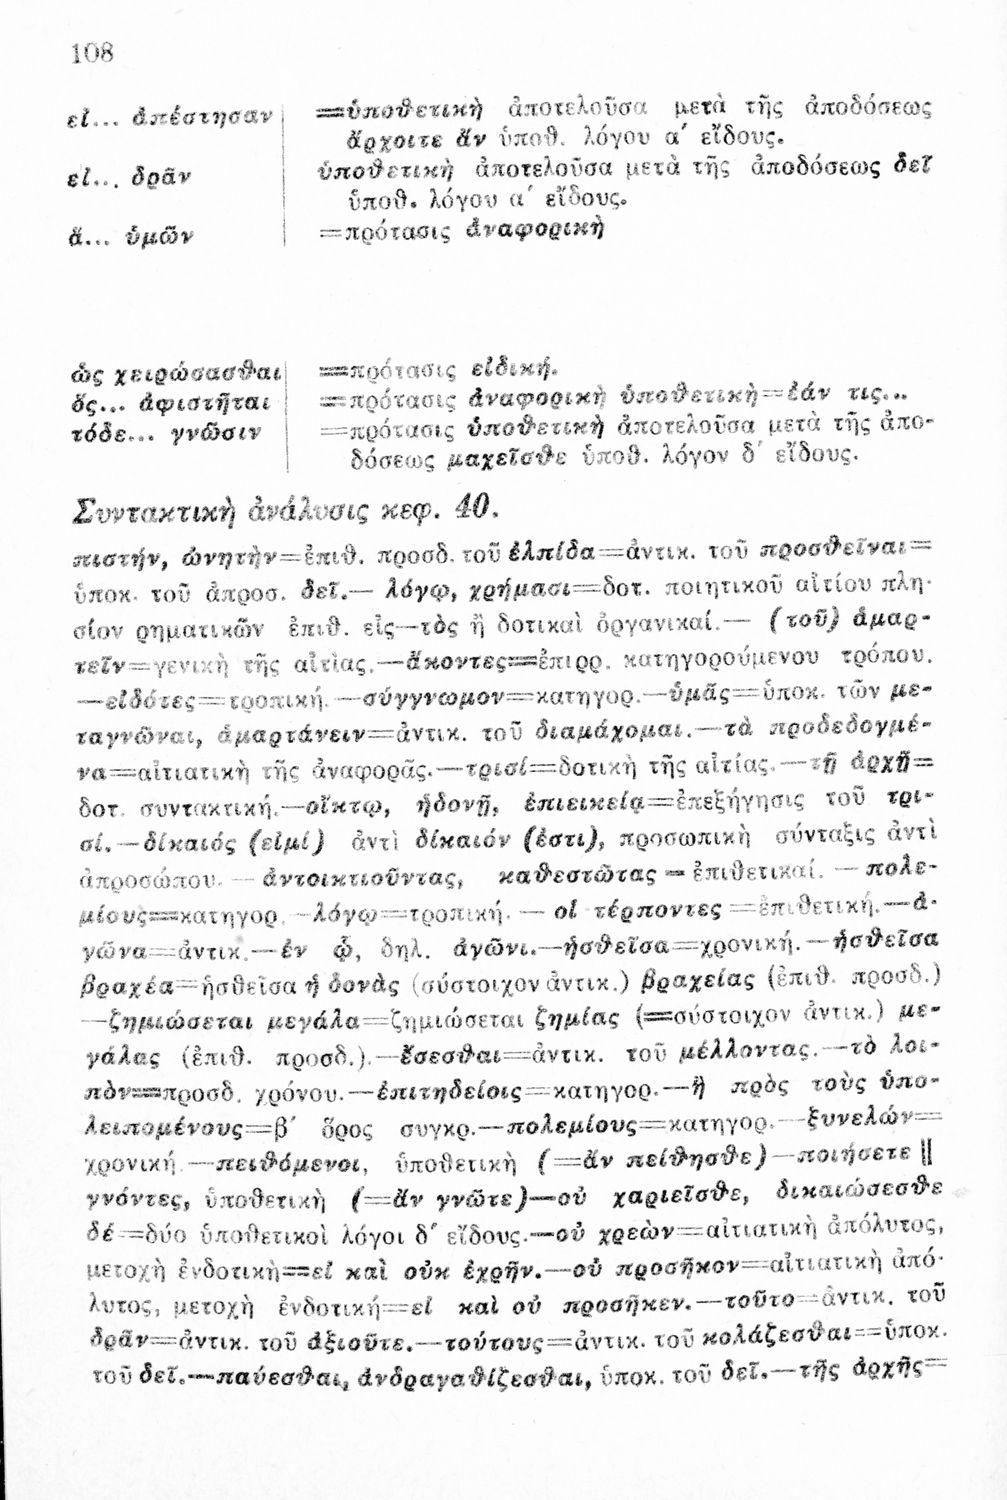 108
εἰ... ἀπέστησαν | ==ὑποθετικὴ ἀποτελοῦσα μετὰ τῆς ἀποδόσεως
ἄρχοιτε ἄν ὑποθ. λόγου α΄ εἴδους.
εἰ... δρᾶν ὑποθετικὴ ἀποτελοῦσα μετὰ τῆς ἀποδόσεως δεῖ
ὑποθ. λόγου α΄ εἴδους.
ἅ... ὑμῶν | =πρότασις ἀναφορικὴ
ὡς χειρώσασθαι | ==πρότασις εἰδική.
ὅς... ἀφιστῆται =πρότασις ἀναφορικὴ ὑποθετικὴ=ἐάν τις...
τόδε... γνῶσιν | =πρότασις ὑποθετικὴ ἀποτελοῦσα μετὰ τῆς ἀπο-
δόσεως μαχεῖσθε ὑποθ. λόγον δ΄ εἴδους.
Συντακτικὴ ἀνάλυσις κεφ. 40.
πιστήν, ὠνητὴν=ἐπιθ. προσδ. τοῦ ἐλπίδα=ἀντικ. τοῦ προσθεῖναι=
ὑποκ. τοῦ ἀπροσ. δεῖ.— λόγῳ, χρήμασι=δοτ. ποιητικοῦ αἰτίου πλη-
σίον ρηματικῶν ἐπιθ. εἰς—τὸς ἢ δοτικαὶ ὀργανικαί.— (τοῦ) ἁμαρ-
τεῖν=γενικὴ τῆς αἰτίας.—ἄκοντες==ἐπιρρ. κατηγορούμενου τρόπου.
—εἰδότες=τροπική.—σύγγνωμον=κατηγορ.—ὑμᾶς=ὑποκ. τῶν με-
ταγνῶναι, ἁμαρτάνειν=ἀντικ. τοῦ διαμάχομαι.—τὰ προδεδογμέ-
να=αἰτιατικὴ τῆς ἀναφορᾶς.—τρισί=δοτικὴ τῆς αἰτίας.—τῇ ἀρχῇ=
δοτ. συντακτική.—οἴκτῳ, ἡδονῇ, ἐπιεικείᾳ=ἐπεξήγησις τοῦ τρι-
σί.—δίκαιός (εἰμί) ἀντὶ δίκαιόν (ἐστι), προσωπικὴ σύνταξις ἀντὶ
ἀπροσώπου.— ἀντοικτιοῦντας, καθεστῶτας = ἐπιθετικαί. — πολε-
μίους==κατηγορ.—λόγῳ=τροπική. — οἱ τέρποντες =ἐπιθετική.—ἀ-
γῶνα=ἀντικ.—ἐν ᾧ, δηλ. ἀγῶνι.—ἡσθεῖσα=χρονική.—ἡσθεῖσα
βραχέα=ἡσθεῖσα ἡδονὰς (σύστοιχον ἀντικ.) βραχείας (ἐπιθ. προσδ.)
—ζημιώσεται μεγάλα=ζημιώσεται ζημίας (==σύστοιχον ἀντικ.) με-
γάλας (ἐπιθ. προσδ.).—ἔσεσθαι=ἀντικ. τοῦ μέλλοντας.—τὸ λοι-
πὸν==προσδ. χρόνου.—ἐπιτηδείοις=κατηγορ.—ἢ πρὸς τοὺς ὑπο-
λειπομένους=β΄ ὅρος συγκρ.—πολεμίους=κατηγορ.—ξυνελών=
χρονική.—πειθόμενοι, ὑποθετικὴ (=ἂν πείθησθε)—ποιήσετε ||
γνόντες, ὑποθετικὴ (=ἂν γνῶτε)—οὐ χαριεῖσθε, δικαιώσεσθε
δέ=δύο ὑποθετικοὶ λόγοι δ΄ εἴδους.—οὐ χρεὼν=αἰτιατικὴ ἀπόλυτος,
μετοχὴ ἐνδοτικὴ==εἰ καὶ οὐκ ἐχρῆν.—οὐ προσῆκον=αἰτιατικὴ ἀπό-
λυτος, μετοχὴ ἐνδοτική=εἰ καὶ οὐ προσῆκεν.—τοῦτο=ἀντικ. τοῦ
δρᾶν=ἀντικ. τοῦ ἀξιοῦτε.—τούτους=ἀντικ. τοῦ κολάζεσθαι=ὑποκ.
τοῦ δεῖ.—παύεσθαι, ἀνδραγαθίζεσθαι, ὑποκ. τοῦ δεῖ.—τῆς ἀρχῆς=